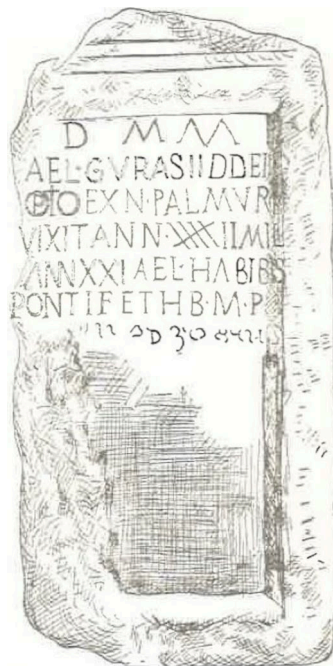 D M M
AEL·GVRAS IIDDEI
OPTIO EX N·PALMVR
VIXIT ANN·XXXXII MIL
ANN XXI AEL·HABIBIS
PONTIF ET H B·M·P